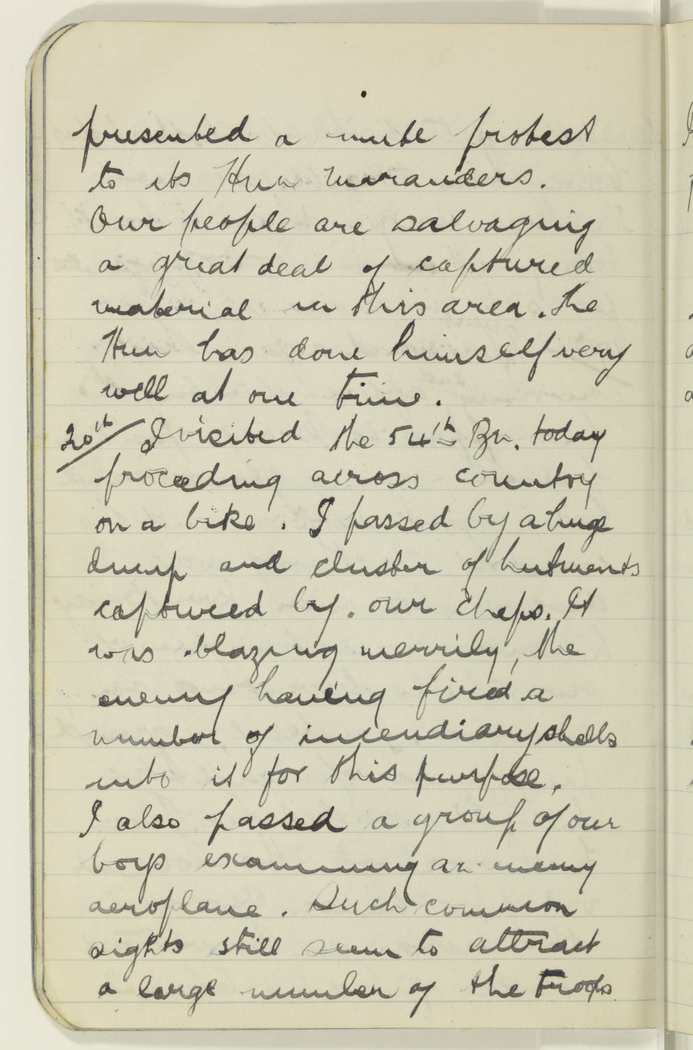 presented a mute protest
to its Hun marauders.
Our people are salvaging
a great deal of captured
material in this area. The
Hun has done himself very
well at one time.
20th I visited the 54th Bn. today
proceeding across country
on a bike. I passed by a huge
dump and cluster of hutments
captured by our chaps. It
was blazing merrily, the
enemy having fired a
number of incendiary shells
into it for this purpose.
I also passed a group of our
boys examining an enemy
aeroplane. Such common
sights still seem to attract
a large number of the troops